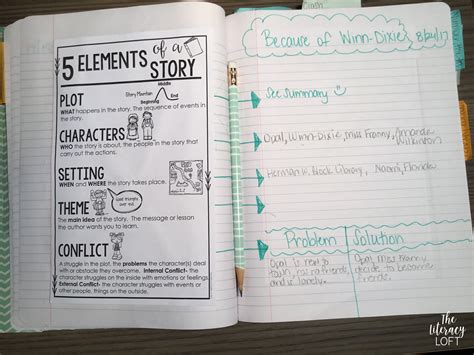 5 ELEMENTS of a STORY
PLOT
Story Mountain
Middle
Beginning
End
WHAT happens in the story. The sequence of events
in the story.
CHARACTERS
WHO the story is about, the people in the story that
carry out the actions.
SETTING
WHEN and WHERE the story takes place.
THEME
Good triumphs
over evil.
The main idea of the story. The message or lesson
the author wants you to learn.
CONFLICT
A struggle in the plot, the problems the character(s) deal
with or obstacle they overcome. Internal Conflict- the
character struggles on the inside with emotions or feelings.
External Conflict- the character struggles with events or
other people, things on the outside.
Because of Winn-Dixie
8/24/17
See summary
Opal, Winn-Dixie, Miss Franny, Amanda
Wilkinson
Herman W. Block Library, Naomi, Florida
Problem
Solution
Opal is new to
town, has no friends
and is lonely.
Opal, Miss Franny
decide to become
friends.
The
literacy
LOFT